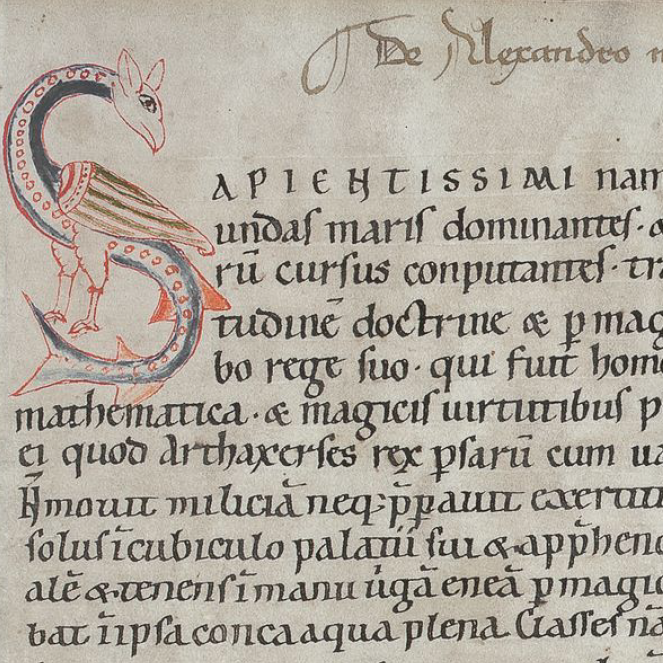 De Alexandro m
SAPIENTISSIMI nam
undas maris dominantes · &
rū cursus conputantes · tr
tudinē doctrine & p mag
bo rege suo · qui fuit home
mathematica · & magicis uirtutibus p
ei quod Arthaxerses rex psarū cum ua
N̄ mouit miliciā neq; p̄parauit exercitu
solus ī cubiculo palatii sui & app̄hend
alē & tenens ī manu uǵā eneā p magic
bat ī ipsa conca aqua plena Classes nā